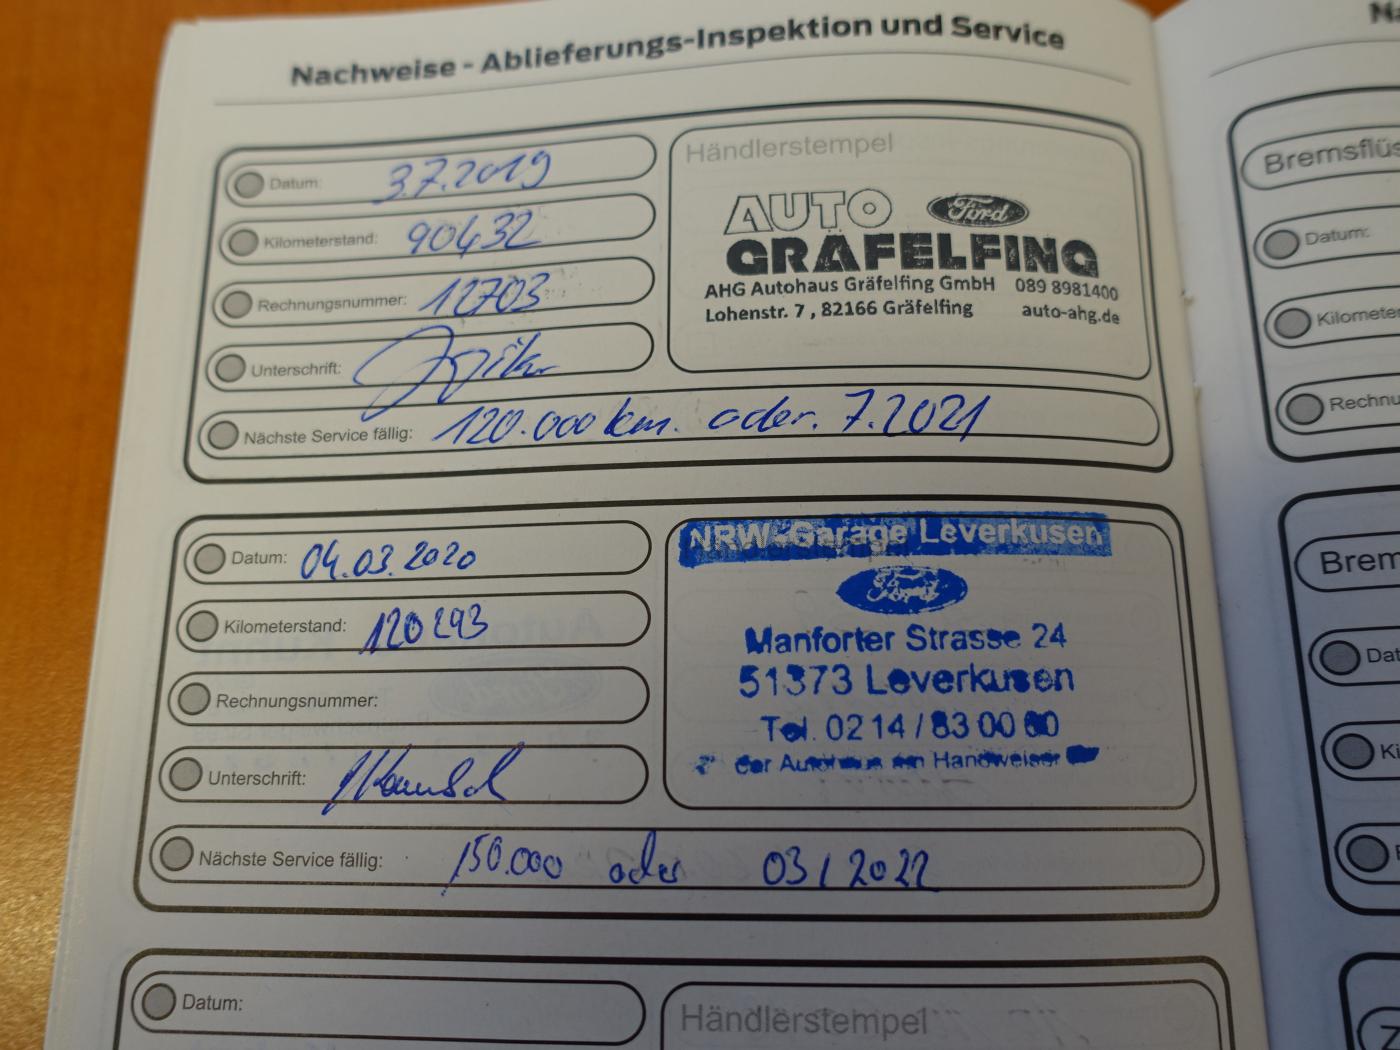 Nachweise - Ablieferungs-Inspektion und Service
Datum: 3.7.2019
Kilometerstand: 90432
Rechnungsnummer: 12703
Unterschrift:
Nächste Service fällig: 120.000 km. oder. 7.2021
Händlerstempel
AUTO Ford
GRÄFELFING
AHG Autohaus Gräfelfing GmbH 089 8981400
Lohenstr. 7 , 82166 Gräfelfing auto-ahg.de
Datum: 04.03.2020
Kilometerstand: 120293
Rechnungsnummer:
Unterschrift:
Nächste Service fällig: 150.000 oder 03/2022
NRW-Garage Leverkusen
Ford
Manforter Strasse 24
51373 Leverkusen
Tel. 0214/83 00
der Autohaus am Handweiser
Datum:
Händlerstempel
Bremsflüs
Datum:
Kilomete
Rechnu
Brem
Dat
Ki